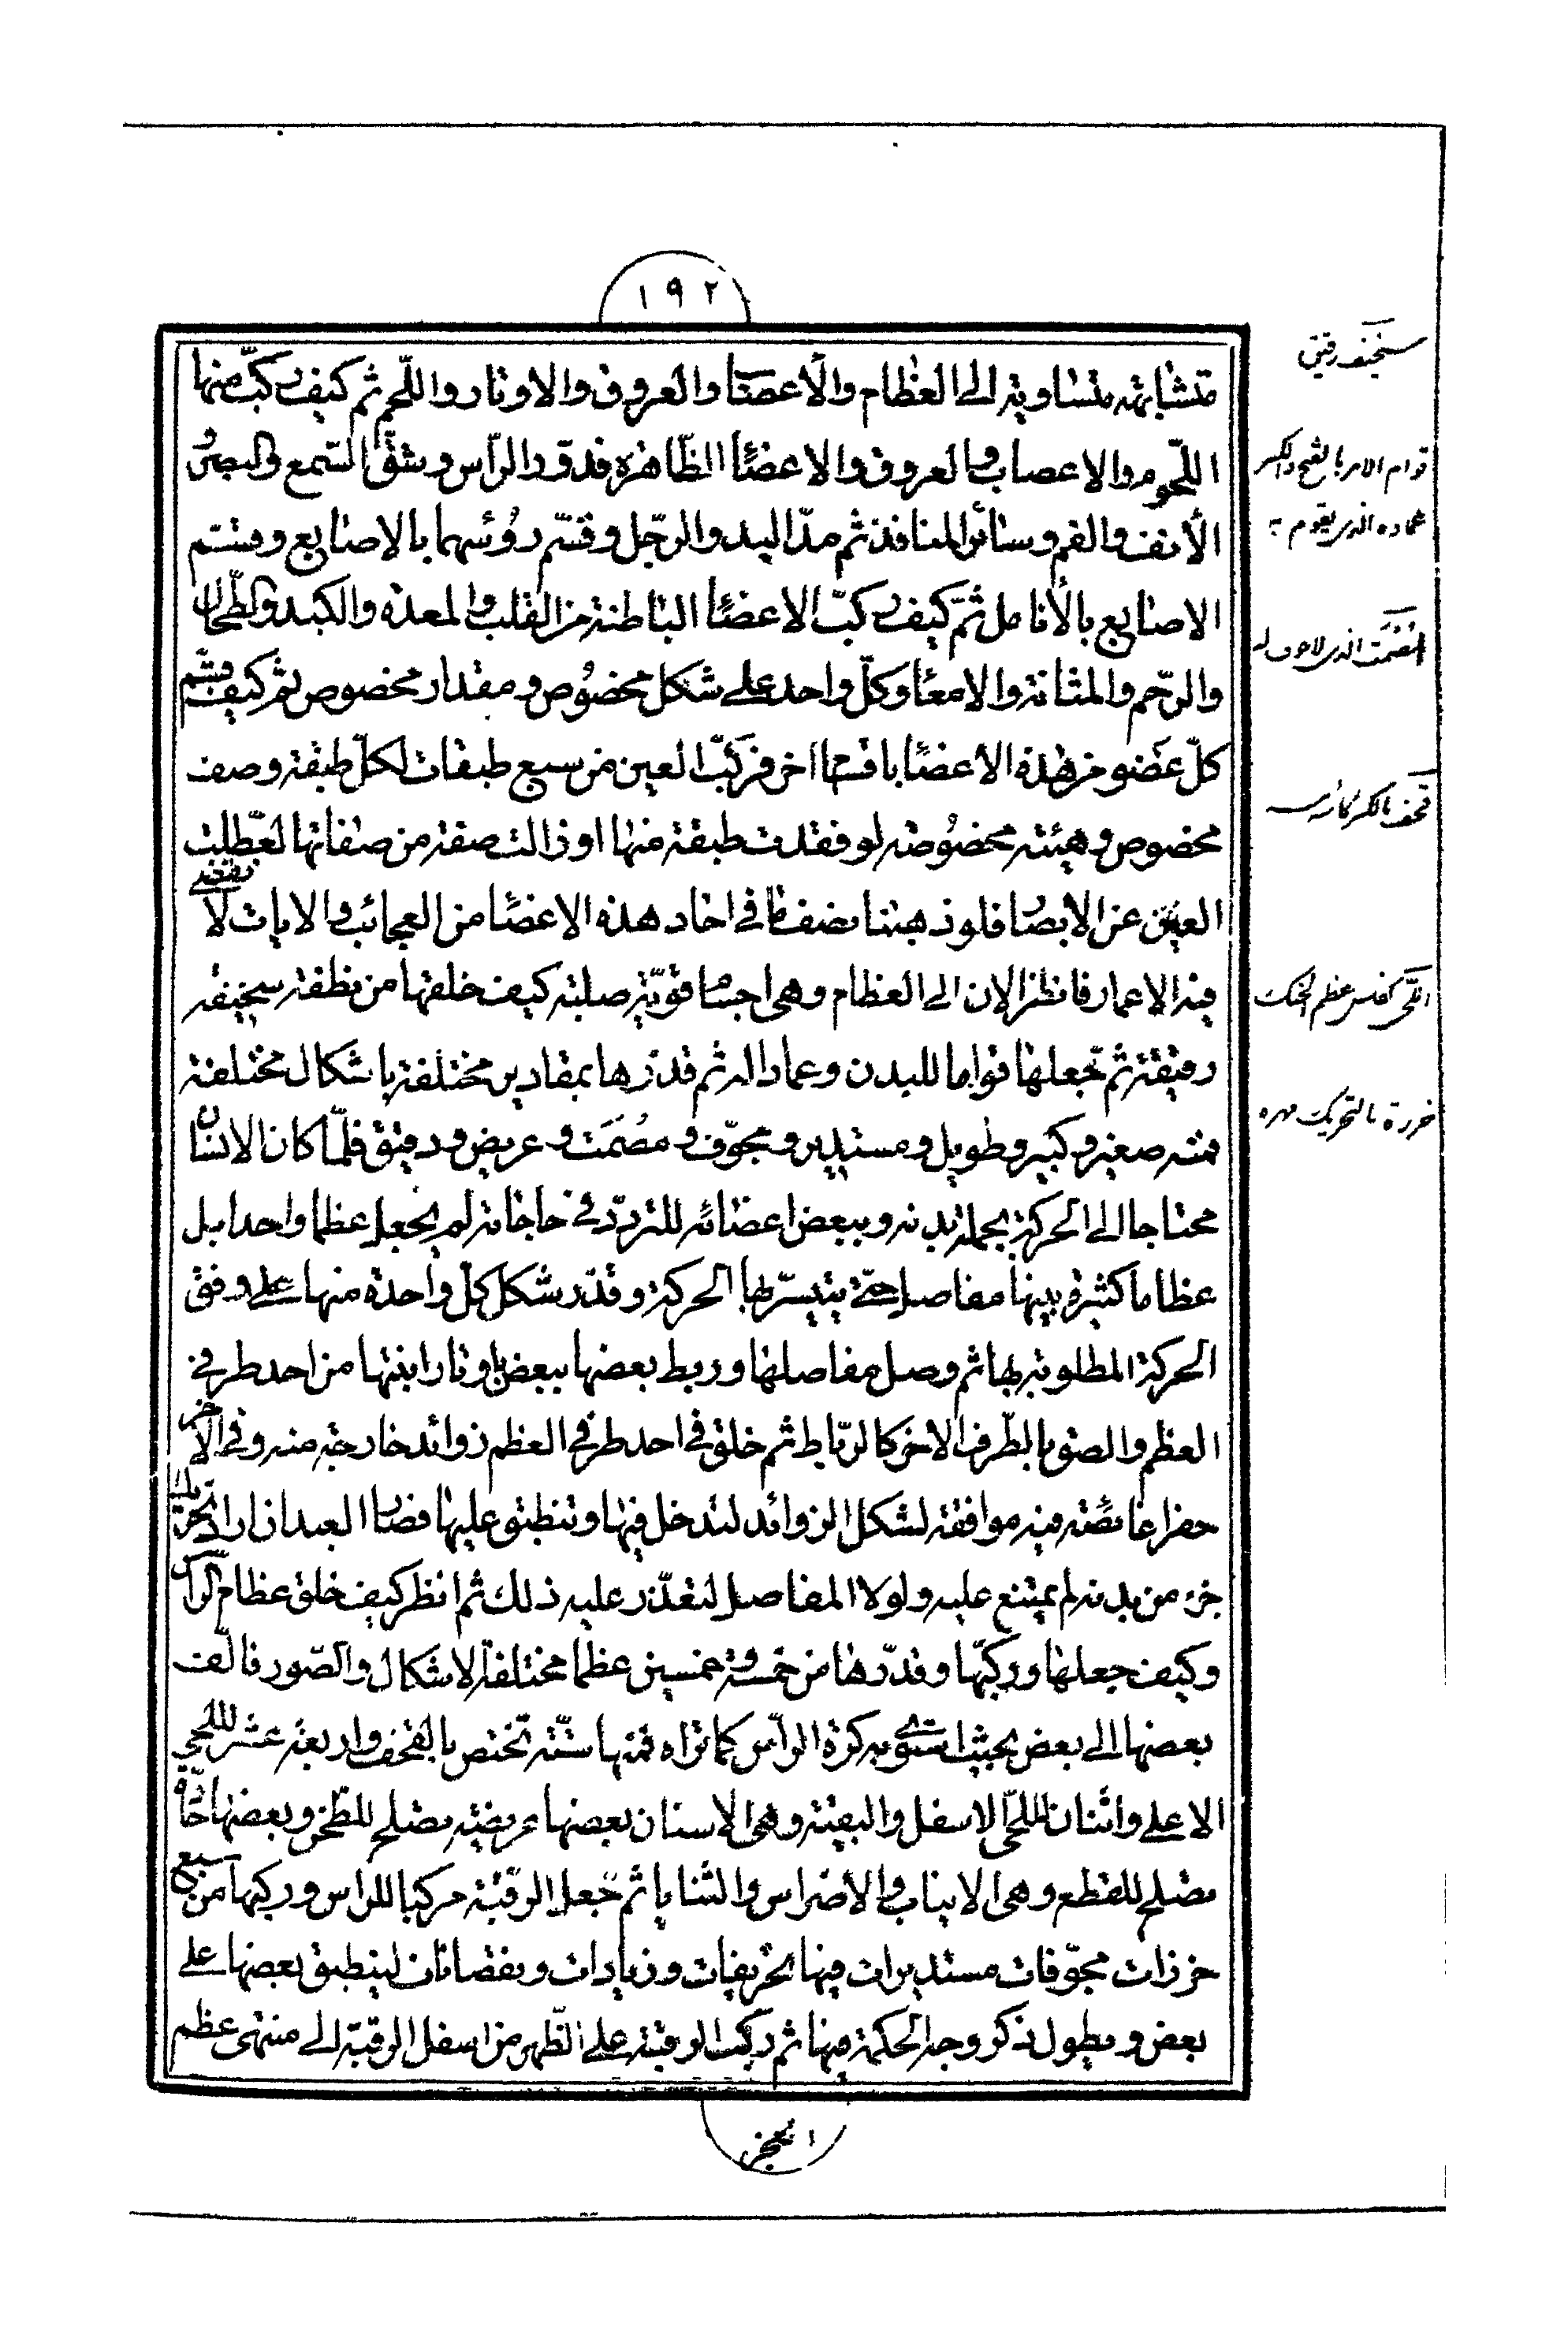 ١٩٢
متشابهة متساوية الى العظام والأعصاب والعروق والاوتار واللّحم ثم كيف ركّب منها
اللّحوم والاعصاب والعروق والاعضاء الظّاهرة فدوّر الرّأس وشقّ السّمع والبصر و
الأنف والفم وسائر المنافذ ثم مدّ اليد والرّجل وقسّم رؤسهما بالاصابع وقسّم
الاصابع بالأنامل ثمّ كيف ركّب الاعضاء الباطنة من القلب والمعدة والكبد والطّحال
والرّحم والمثانة والامعاء وكلّ واحد على شكل مخصوص ومقدار مخصوص ثم كيف قسّم
كلّ عضو من هذه الاعضاء باقسام اخر فركّب العين من سبع طبقات لكلّ طبقة وصف
مخصوص وهيئة مخصوصة لو فقدت طبقة منها او زالت صفة من صفاتها لعطّلت
العين عن الأبصار فلو ذهبنا نصف ما في احاد هذه الاعضاء من العجائب والايات لانقضى
فيه الاعمار فانظر الان الى العظام وهي اجسام قويّة صلبة كيف خلقها من نطفة سخيفة
رقيقة ثم جعلها قواما للبدن وعمادا له ثم قدّرها بمقادير مختلفة باشكال مختلفة
فمنه صغير وكبير وطويل ومستدير ومجوّف ومصمت وعريض ودقيق فلمّا كان الانسان
محتاجا الى الحركة بجملة بدنه وببعض اعضائه للتردّد في حاجاته لم يجعل عظما واحدا بل
عظاما كثيرة بينها مفاصل حتّى يتيسّر لها الحركة وقدّر شكل كلّ واحدة منها على وفق
الحركة المطلوبة بها ثم وصل مفاصلها وربط بعضها ببعض باوتار انبتها من احد طرفي
العظم والصق بالطّرف الاخر كالرّباط ثم خلق في احد طرفي العظم زوائد خارجة منه وفي الآخر
حفرا غائصة فيه موافقة لشكل الزوائد لتدخل فيها وتنطبق عليها فصار العبد ان اراد تحريك
جزء من بدنه لم يمتنع عليه ولولا المفاصل لتعذّر عليه ذلك ثم انظر كيف خلق عظام الرّأس
وكيف جعلها وركّبها وقدّرها من خمسة وخمسين عظما مختلفة الاشكال والصّور فالّف
بعضها الى بعض بحيث استوى به كرة الرّأس كما تراه فمنها ستّة تختص بالقحف واربعة عشر للّحى
الاعلى واثنان للّحى الاسفل والبقيّة وهي الاسنان بعضها عريضة يصلح للطّحن وبعضها حادّة
يصلح للقطع وهي الانياب والأضراس والثنايا ثم جعل الرّقبة مركبا للراس وركبها من سبع
خرزات مجوّفات مستديرات فيها تحريفات وزيادات ونقصانات لينطبق بعضها على
بعض ويطول ذكر وجه الحكمة فيها ثم ركّب الرقبة على الظّهر من اسفل الرقبة الى منتهى عظم
العجز
سخيف رقيق
قوام الامر بالفتح والكسر
عماده الذي يقوم به
المصمت الذي لا جوف له
قحف بالكسر كاسه سر
اللحى كفلس عظم الحنك
خرزة بالتحريك مهره